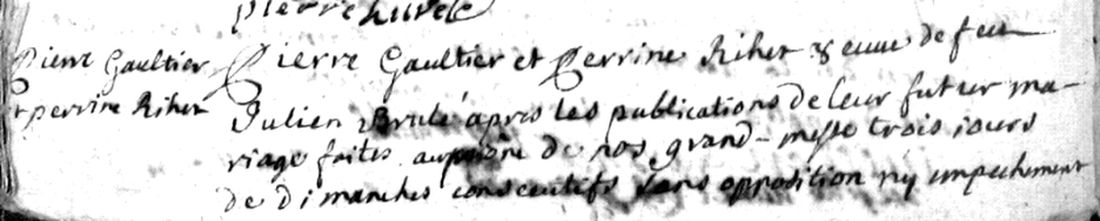 Pierre hurel
Pierre Gaultier
et perrine Riher
Pierre Gaultier et Perrine Riher veuue de feu
Julien Brulé apres les publications de leur futur ma-
riage faites au prône de nos grand-messe trois iours
de dimanches consecutifs sans opposition ny empechement